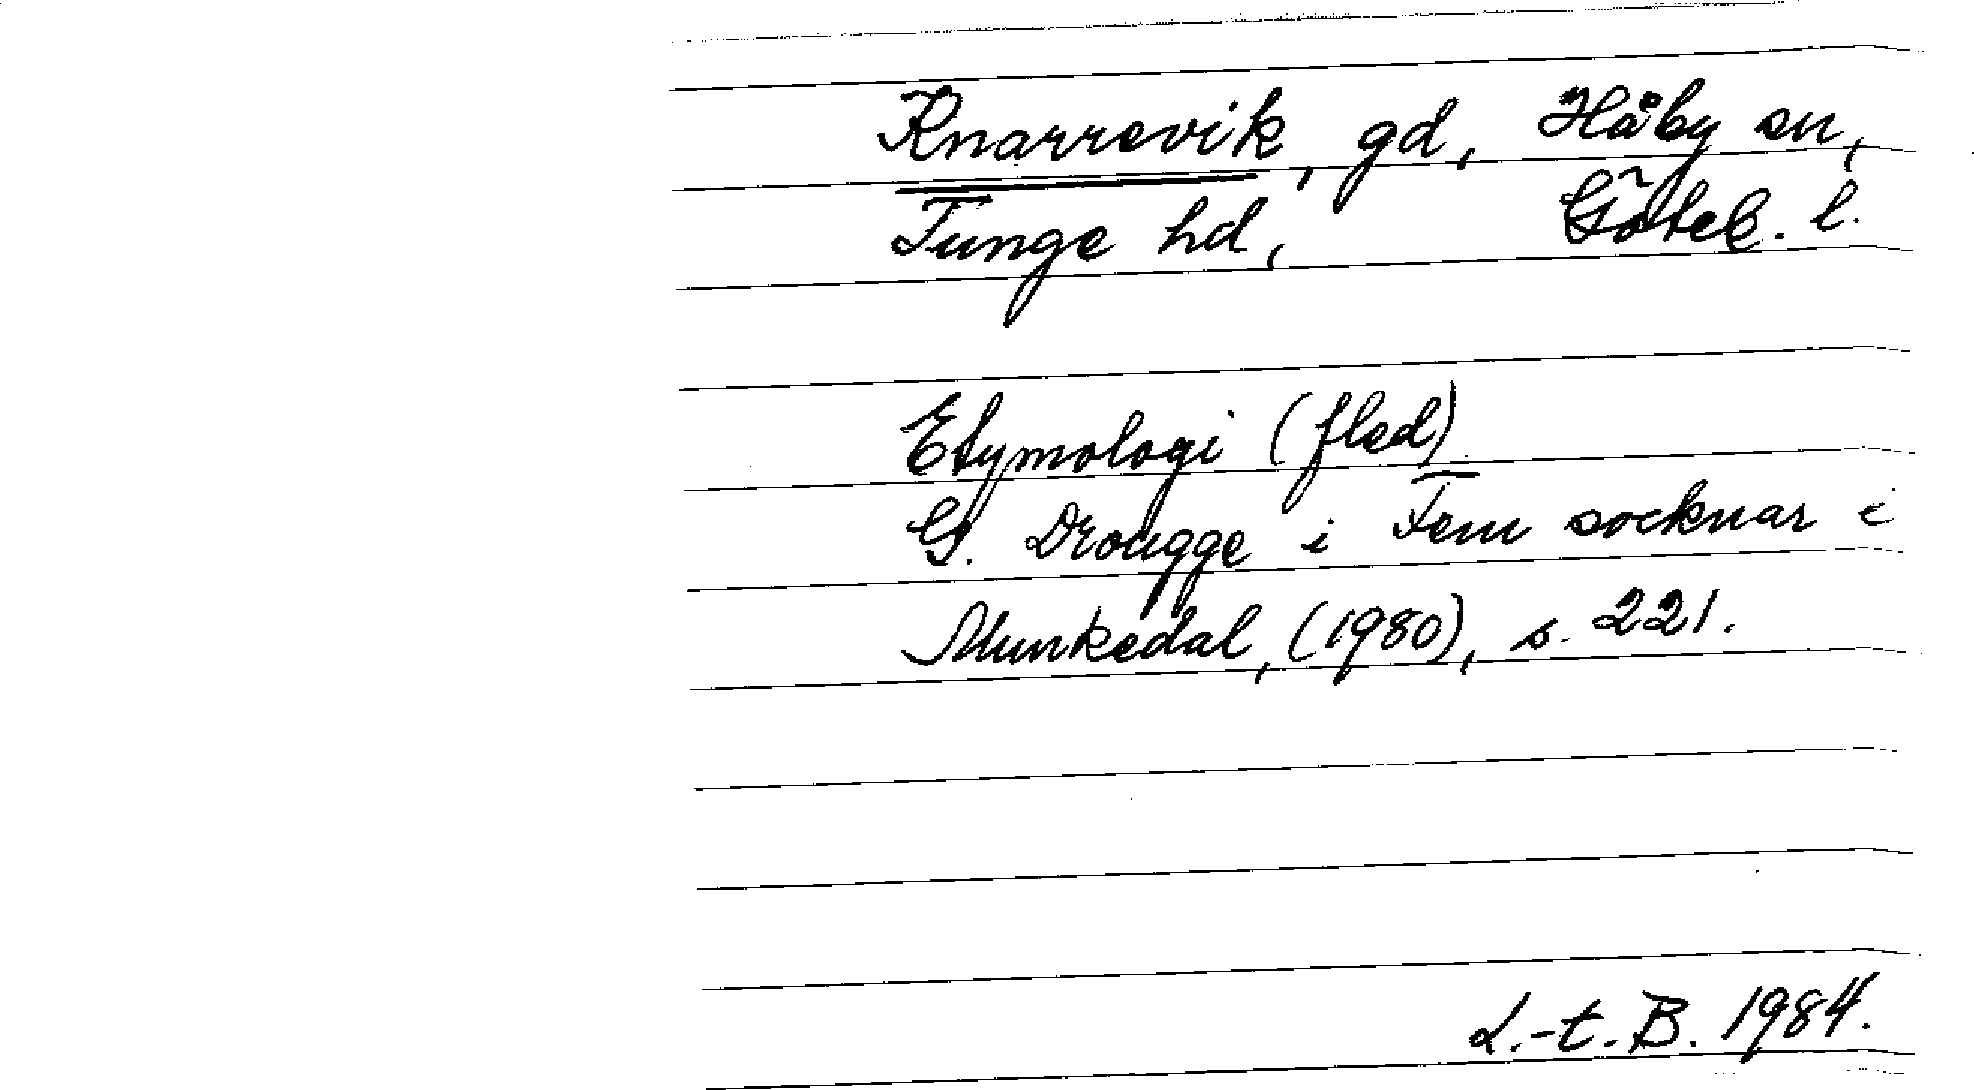 Knarrevik, gd, Håby sn,
Tunge hd, Göteb. l.
Etymologi (fled)
G. Drougge i Fem socknar i
Munkedal, (1980), s. 221.
L.-t. B. 1984.